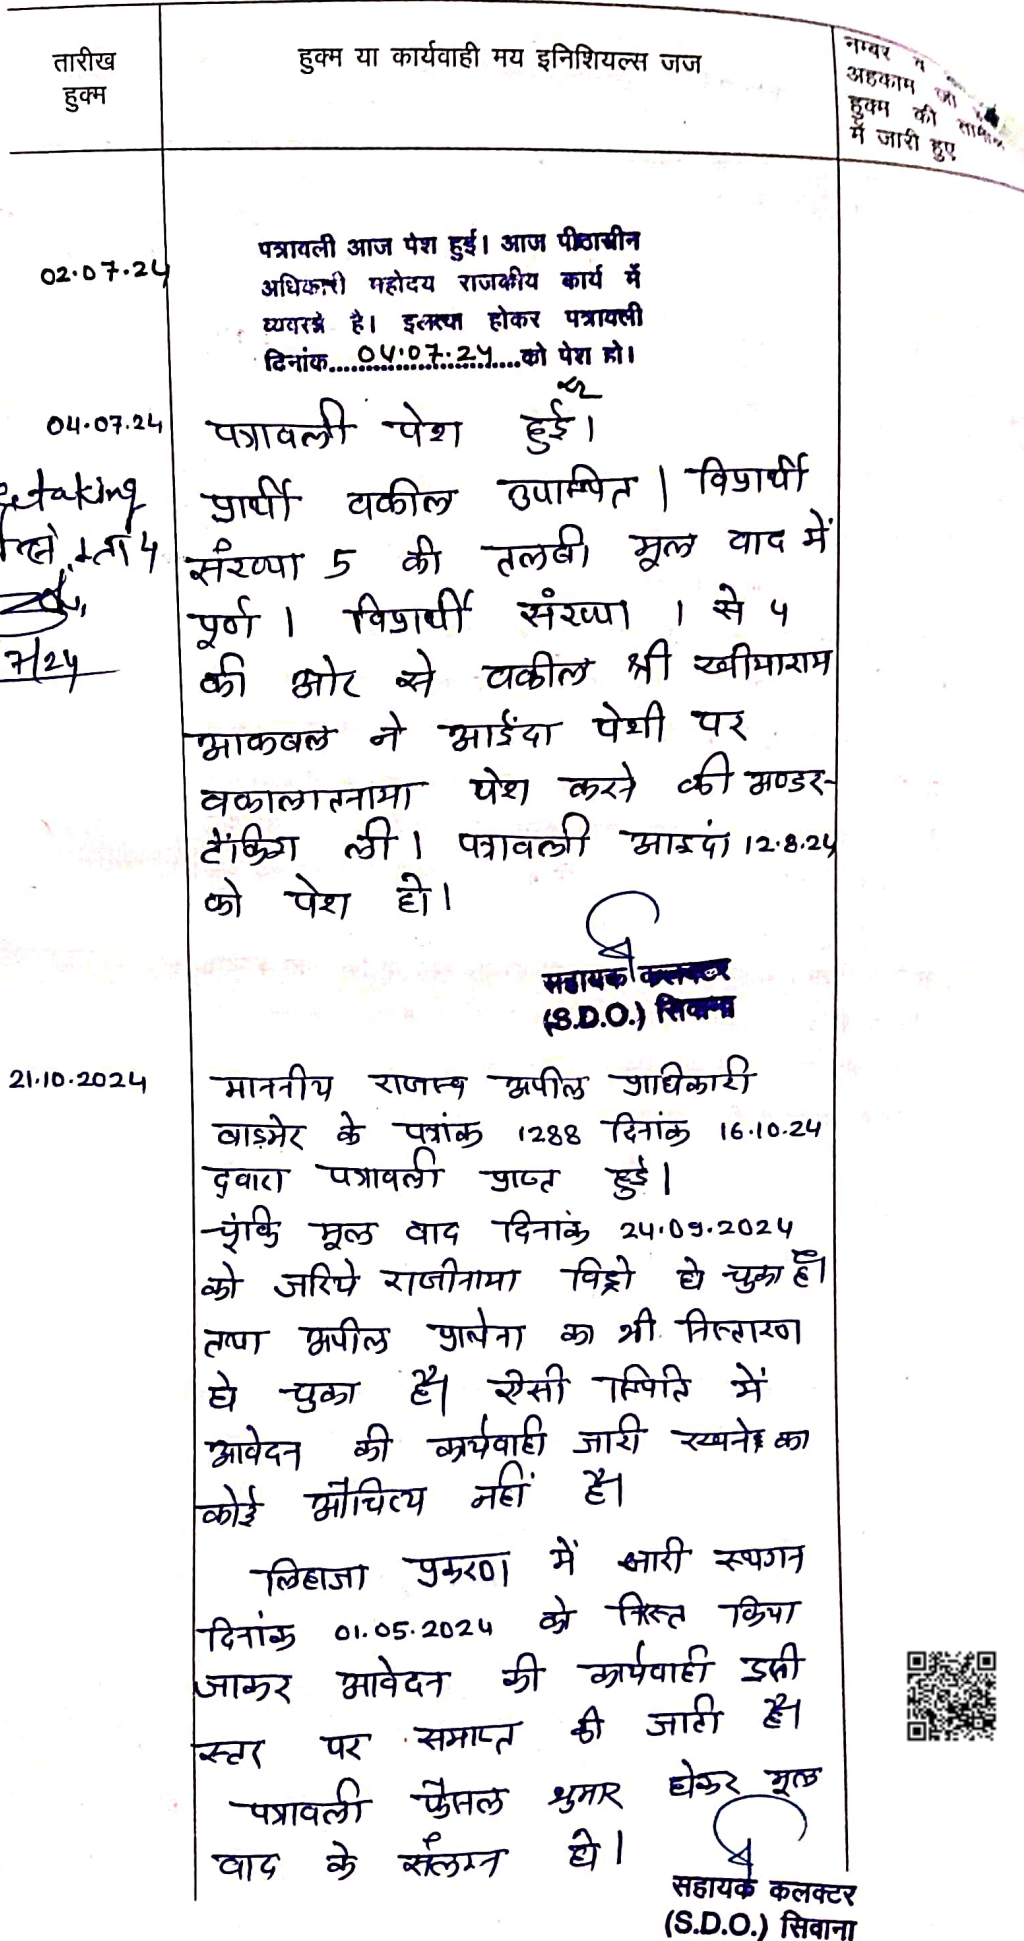 तारीख
हुक्म
हुक्म या कार्यवाही मय इनिशियल्स जज
नम्बर व
अहकाम जो
हुक्म की तामील
में जारी हुए
02.07.24
पत्रावली आज पेश हुई। आज पीठासीन
अधिकारी महोदय राजकीय कार्य में
व्यवस्त है। इलत्वा होकर पत्रावली
दिनांक.....04.07.24.....को पेश हो।
04.07.24
पत्रावली पेश हुई।
प्रार्थी वकील उपस्थित। विप्रार्थी
संख्या 5 की तलबी मूल वाद में
पूर्ण। विप्रार्थी संख्या 1 से 4
की ओर से वकील श्री खीमाराम
आकबल ने आईंदा पेशी पर
वकालातनामा पेश करने की अण्डर-
टेकिंग ली। पत्रावली आइदां 12.8.24
को पेश हो।
taking
4
7/24
सहायक कलक्टर
(S.D.O.) सिवाना
21.10.2024
माननीय राजस्व अपील प्राधिकारी
बाड़मेर के पत्रांक 1288 दिनांक 16.10.24
द्वारा पत्रावली प्राप्त हुई।
चूंकि मूल वाद दिनांक 24.09.2024
को जरिये राजीनामा विड्रो हो चुका है।
तथा अपील का भी निस्तारण
हो चुका है। ऐसी स्थिति में
आवेदन की कार्यवाही जारी रखने का
कोई औचित्य नहीं है।
लिहाजा प्रकरण में जारी स्थगन
दिनांक 01.05.2024 को निरस्त किया
जाकर आवेदन की कार्यवाही इसी
स्तर पर समाप्त की जाती है।
पत्रावली फैसल शुमार होकर मूल
वाद के संलग्न हो।
सहायक कलक्टर
(S.D.O.) सिवाना